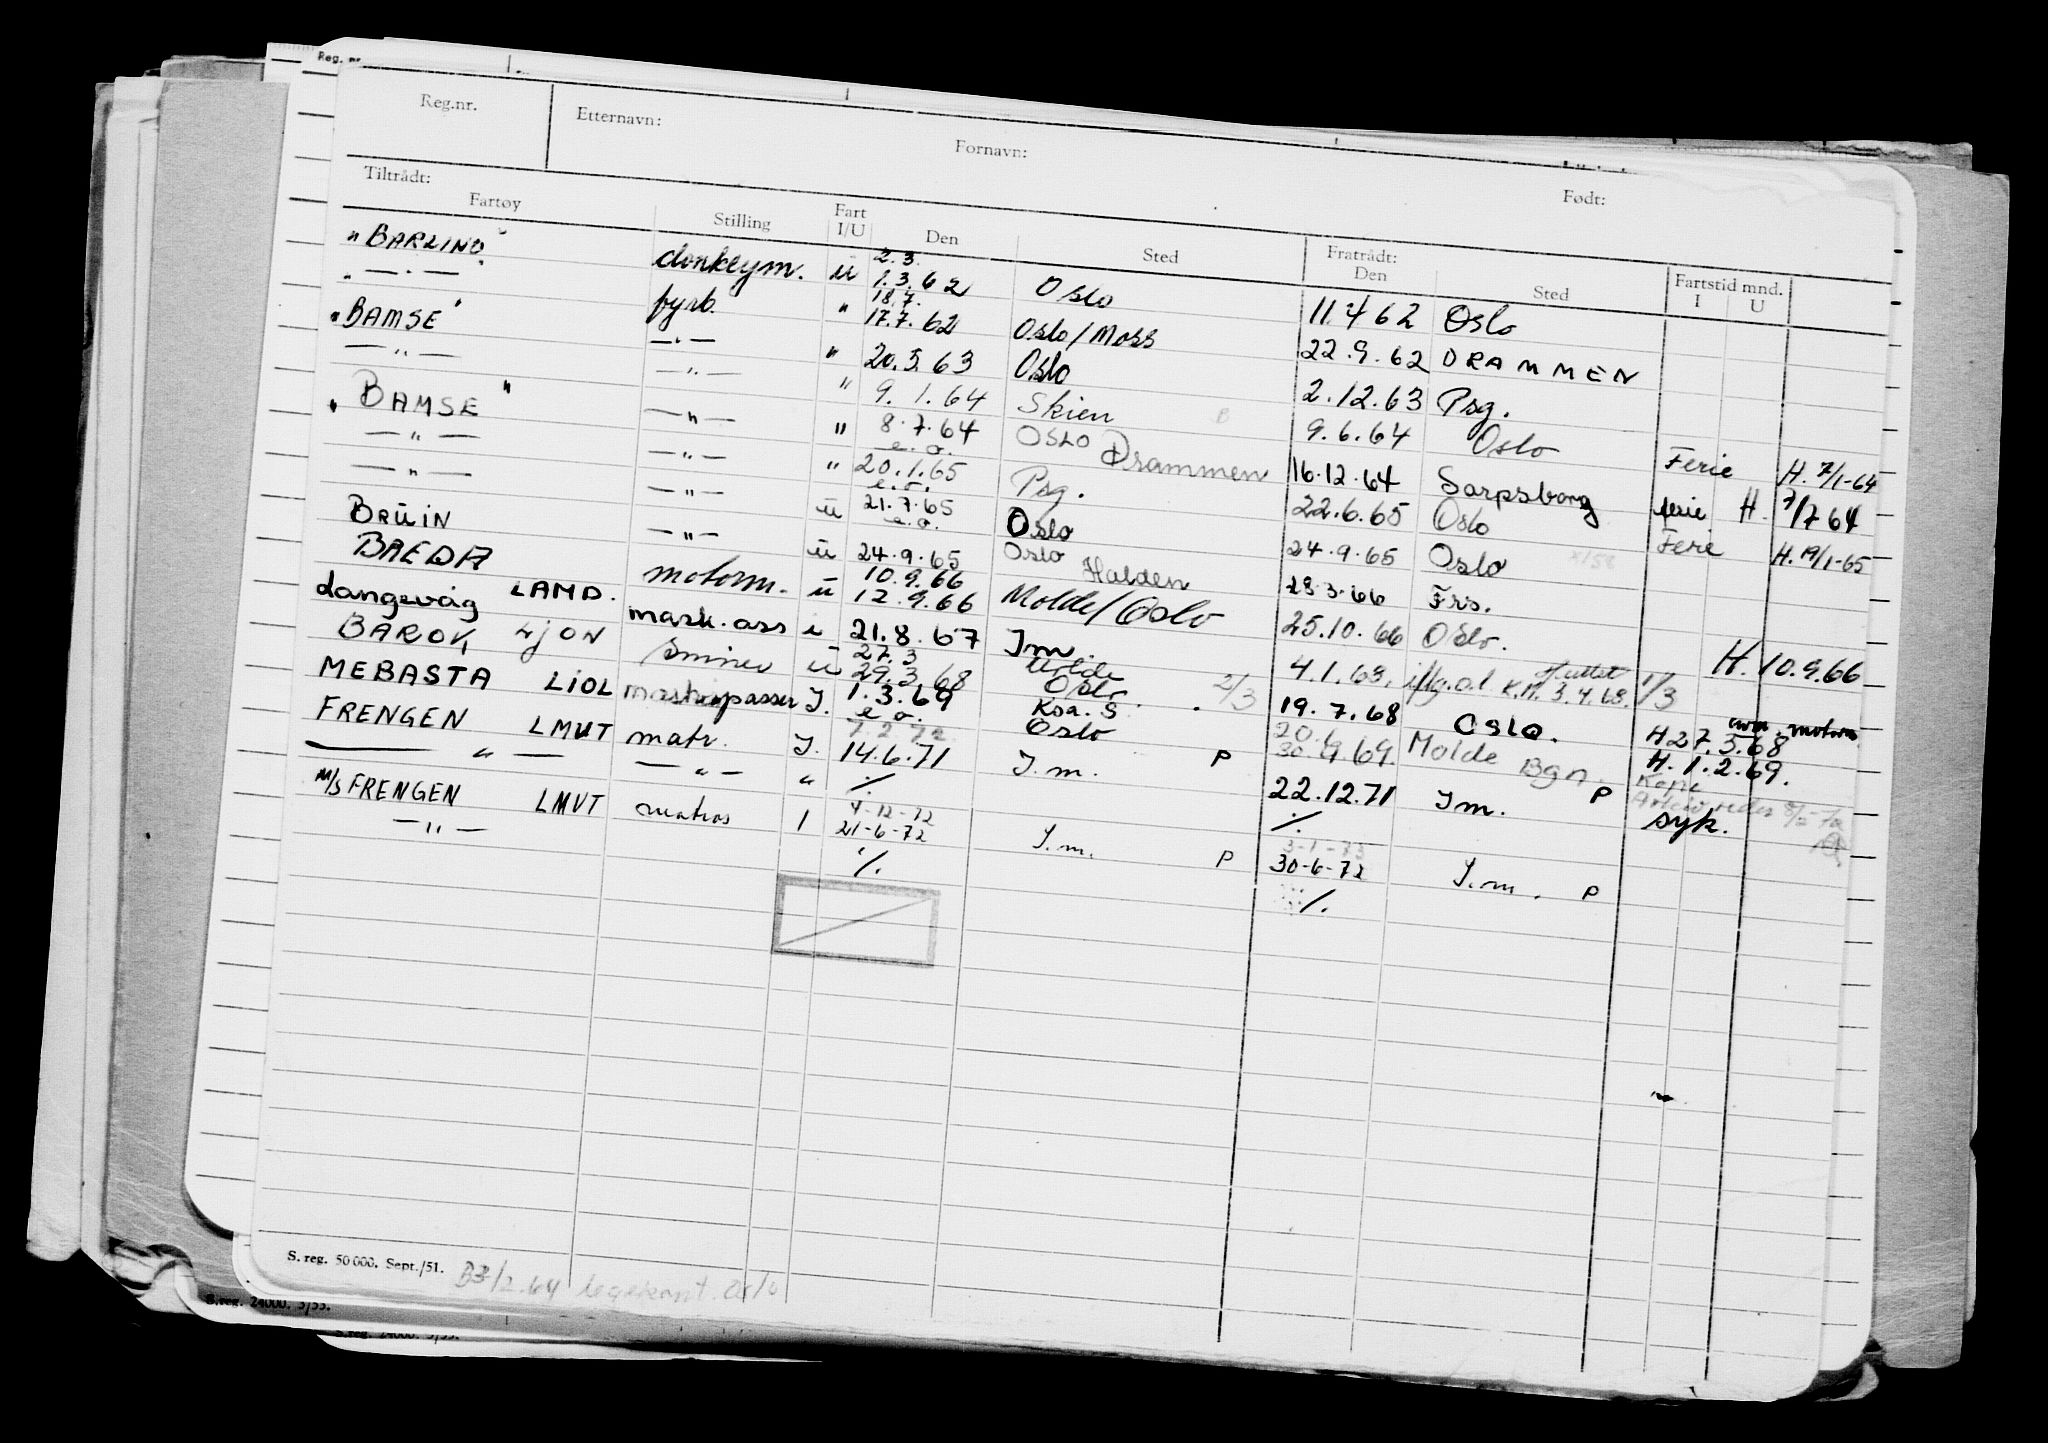 Reg. nr.
Reg.nr. Etternavn: Fornavn: Født:
Tiltrådt: Fratrådt:
Fartøy Stilling Fart I/U Den Sted Den Sted Fartstid mnd. I U
"BARLIND" donkeym. ü 2.3. 1.3.62 Oslo 11.4 62 Oslo
" — " — " fyrb. " 18.7. 17.7.62 Oslo/Moss 22.9.62 DRAMMEN
"BAMSE" — " — " 20.5.63 Oslo 2.12.63 Psg.
— " — — " — " 9.1.64 Skien 9.6.64 Oslo Ferie H. 7/1-64
"BAMSE" — " — " 8.7.64 e.o. OSLO Drammen 16.12.64 Sarpsborg ferie H. 7/7 64
— " — — " — " 20.1.65 e.o. Psg. 22.6.65 Oslo Ferie H. 19/1-65
— " — — " — ü 21.7.65 e.o. Oslo 24.9.65 Oslo
BRÜIN — " — ü 24.9.65 Oslo Halden 28.3.66 Frs.
BAEDA motorm. ü 10.9.66 12.9.66 Molde/Oslo 25.10.66 Oslo. H. 10.9.66
Langevåg LAMD. mask.ass i 21.8.67 I m. 4.1.68. iflg. o.l K.M. 3.4.68. 1/3
BAROK LJON smører ü 27.3 29.3 68 Molde Oslo 2/3 19.7.68 Oslo. H 27.3.68 motorm.
MEBASTA LIOL maskinpasser I. 1.3.69 e o. Ksa. S Oslo 30.9.69. Molde Bgn. H. 1.2.69.
FRENGEN LMUT matr. I. 7.2.72 14.6.71 I.m. P 22.12.71 I m. P syk. Kopi
— " — — " — " ·/. ·/.
M/S FRENGEN LMVT matros 1 4-12-72 21-6-72 I.m. P 3-1-73 30-6-72 I.m. P
— " — ·/. ·/.
S. reg. 50 000. Sept./51. B3/2.64 legekont. Oslo
S.reg. 24000. 3/53.
S.reg. 24000. 3/53.